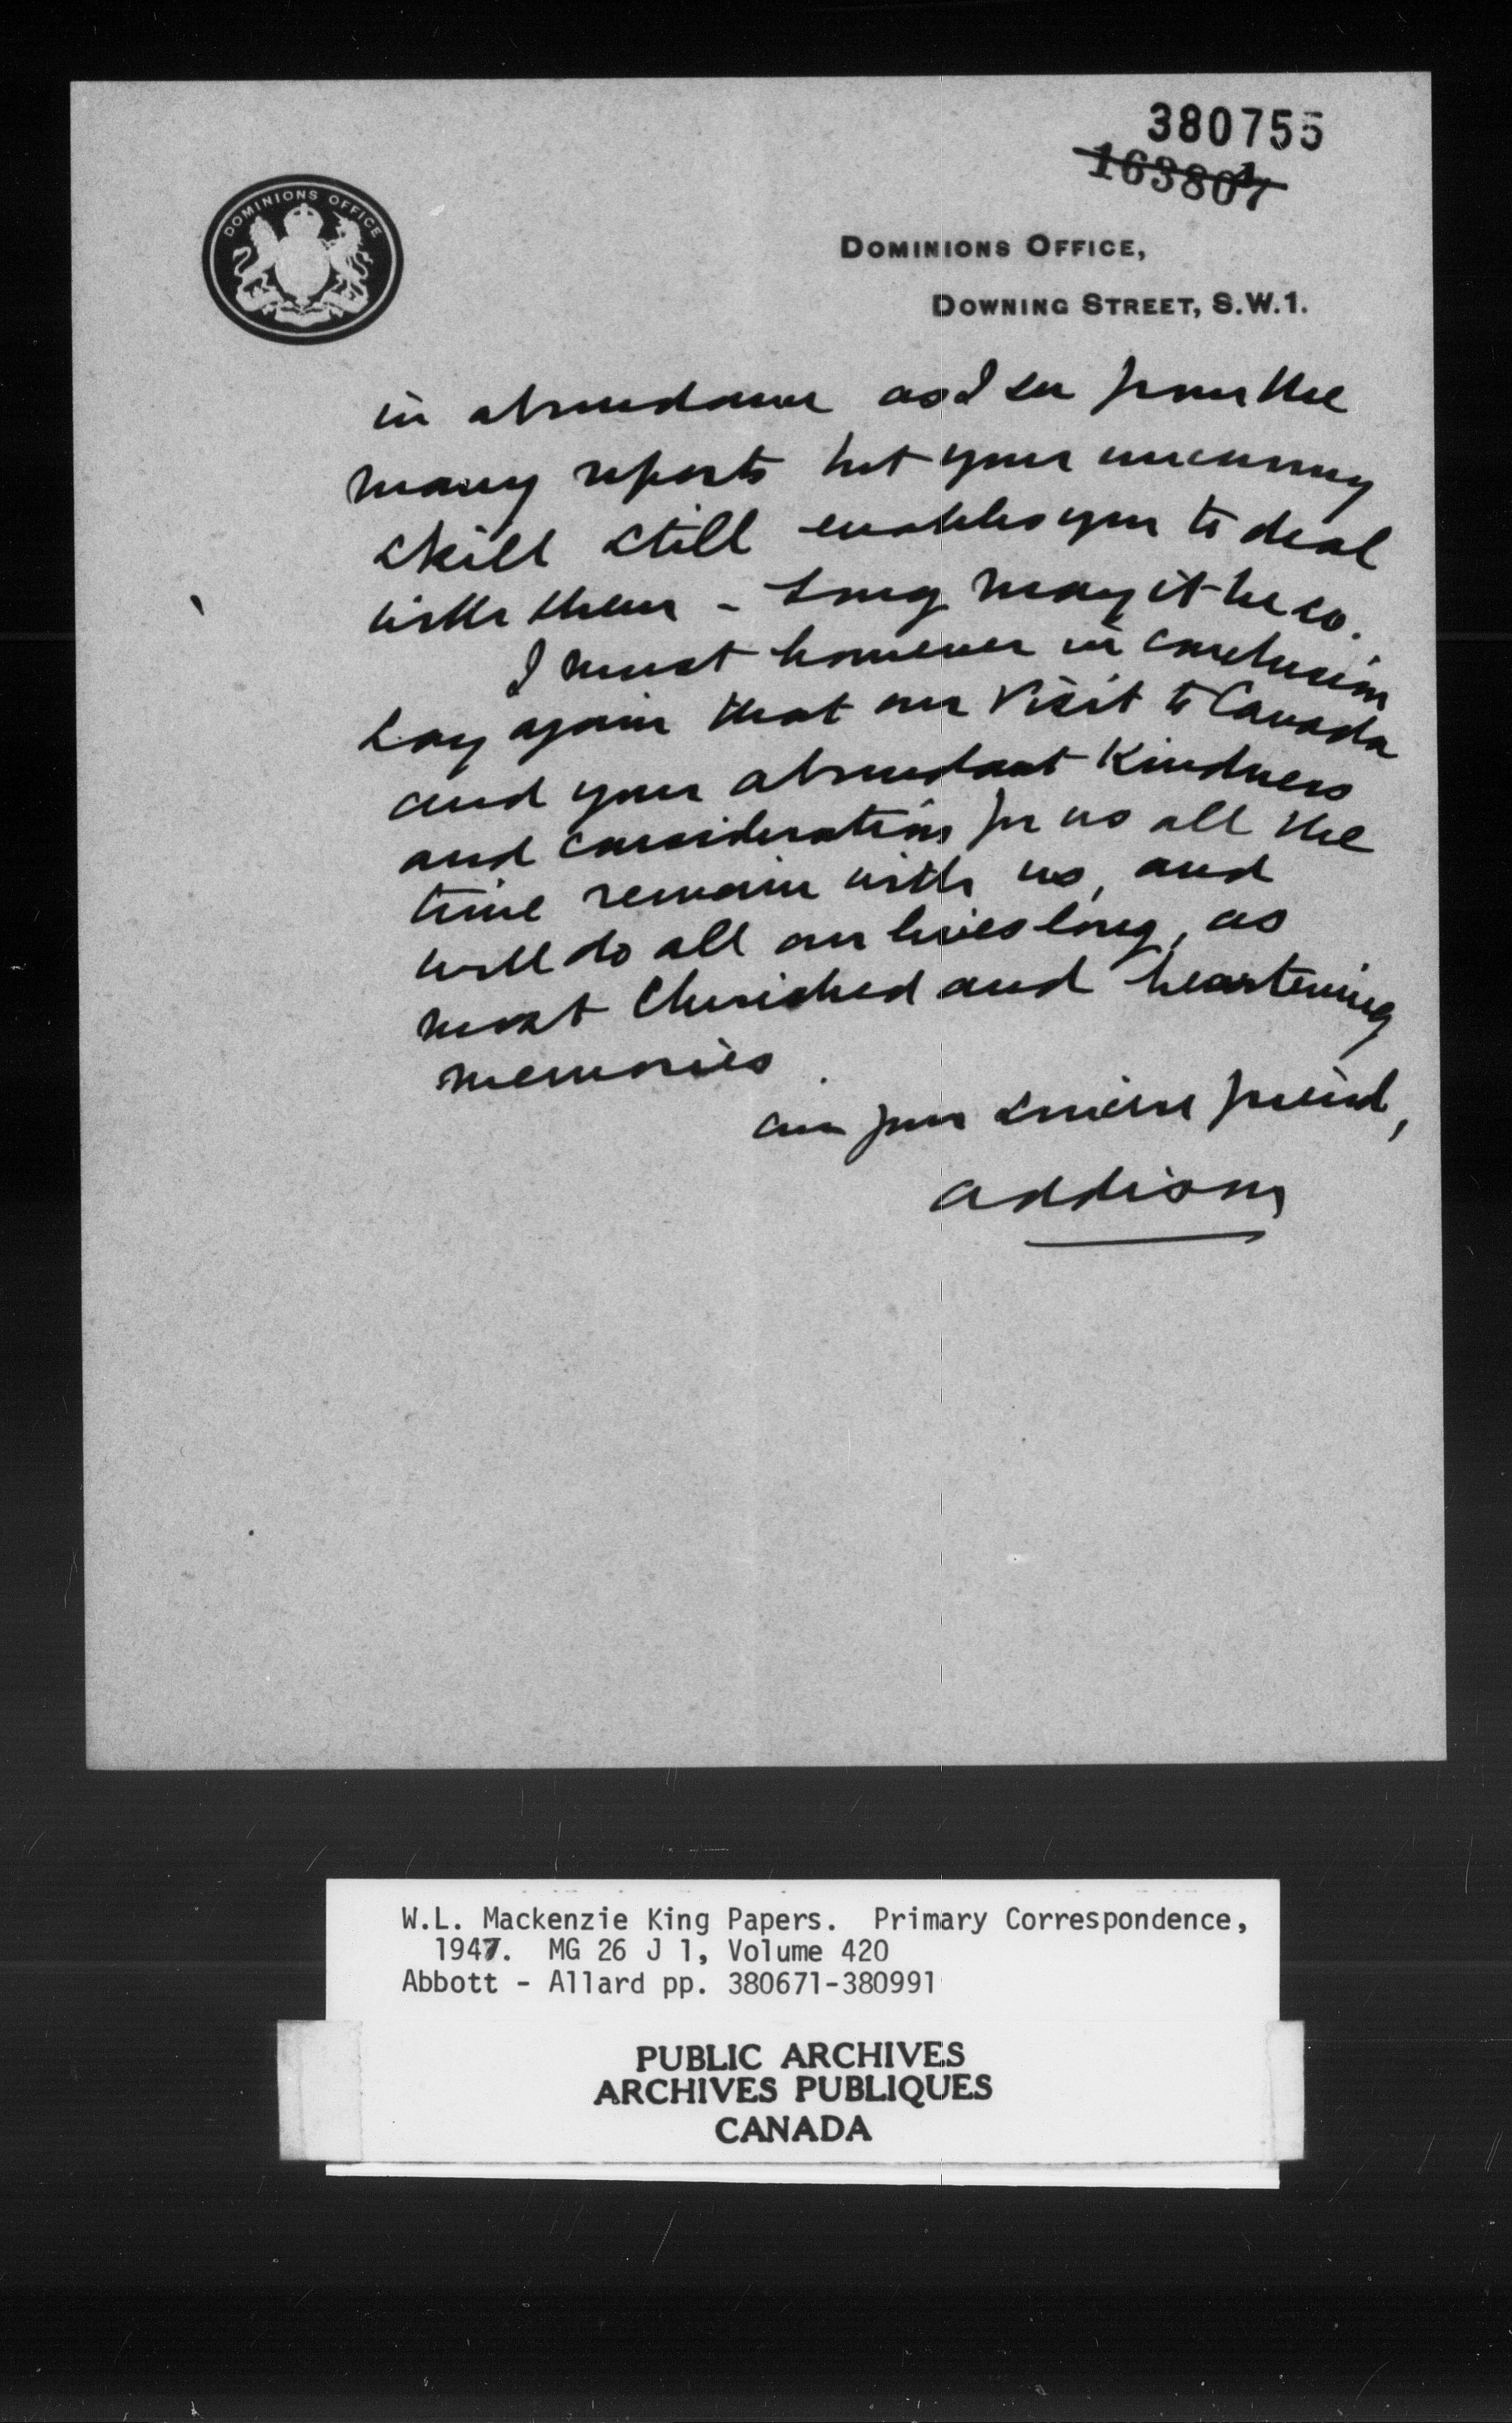 380755
163807
DOMINIONS OFFICE
DOMINIONS OFFICE,
DOWNING STREET, S.W.1.
in abundance as I see from the
many reports but your uncanny
skill still enables you to deal
with them - Long may it be so.
I must however in conclusion
say again that our visit to Canada
and your abundant kindness
and consideration for us all the
time remain with us, and
will do all our lives long, as
most cherished and heartening
memories.
am your sincere friend,
Addison
W.L. Mackenzie King Papers. Primary Correspondence,
1947. MG 26 J 1, Volume 420
Abbott - Allard pp. 380671-380991
PUBLIC ARCHIVES
ARCHIVES PUBLIQUES
CANADA